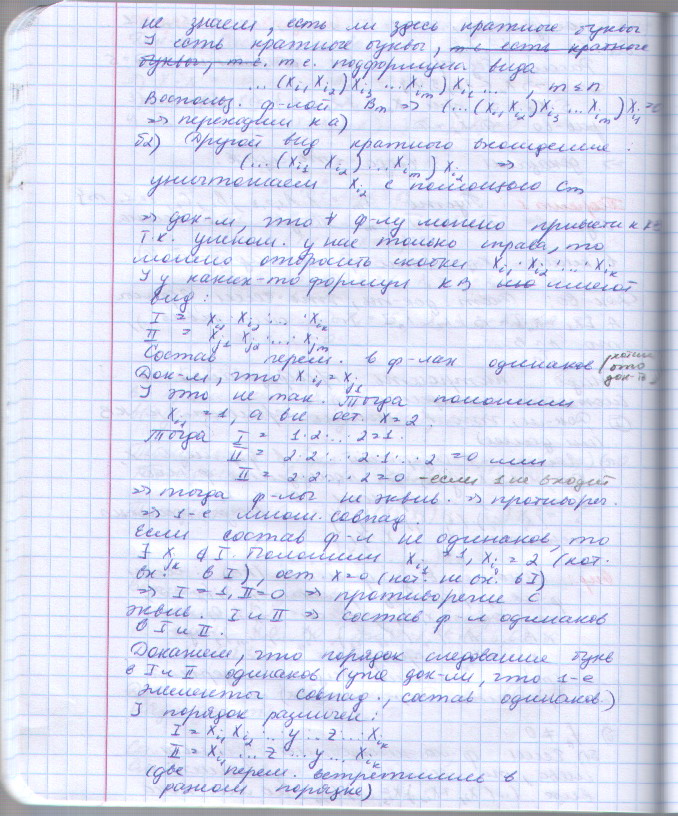 не знаем, есть ли здесь кратные буквы
] есть кратные буквы, т.е. есть кратные
буквы, т.е. т.е. подформулы вида
...(x_{i1} x_{i2}) x_{i3} ... x_{im}) x_{i1} ... , m ≤ n
Воспольз. ф-лой B_m ⇒ (...(x_{i1} x_{i2}) x_{i3} ... x_{im}) x_{i1} = 0
⇒ переходим к а)
б2) Другой вид кратного вхождения:
(...(x_{i1} x_{i2}) ... x_{im}) x_{i2} ⇒
уничтожаем x_{i2} с помощью C_m
⇒ док-м, что ∀ ф-лу можно привести к КВ
Т.к. умнож. у нас только справа, то
можно отбросить скобки x_{i1} · x_{i2} · ... · x_{ik}
] у каких-то формул КВ имеют
вид:
I = x_{i1} · x_{i2} · ... · x_{ik}
II = x_{j1} · x_{j2} · ... · x_{jm}
Состав перем. в ф-лах одинаков (хотим это док-ть)
Док-м, что x_{i1} = x_{j1}
] это не так. Тогда положим
x_{i1} = 1, а все ост. x = 2.
Тогда I = 1·2·...·2 = 1.
II = 2·2·...·2·1·...·2 = 0 или
II = 2·2·...·2 = 0 – если 1 не входит
⇒ тогда ф-лы не эквив. ⇒ противореч.
⇒ 1-е множ. совпад.
Если состав ф-л не одинаков, то
∃ x_{jk} ∉ I. Положим x_{i1} = 1, x_i = 2 (кот.
вх. в I), ост x = 0 (кот. не вх. в I)
⇒ I = 1, II = 0 ⇒ противореч с
эквив. I и II ⇒ состав ф-л одинаков
в I и II.
Докажем, что порядок следования букв
в I и II одинаков (уже док-ли, что 1-е
элементы совпад., состав одинаков)
] порядок различен:
I = x_{i1} x_{i2} ... y ... z ... x_{ik}
II = x_{i1} ... z ... y ... x_{ik}
(две перем. встретились в
разном порядке)